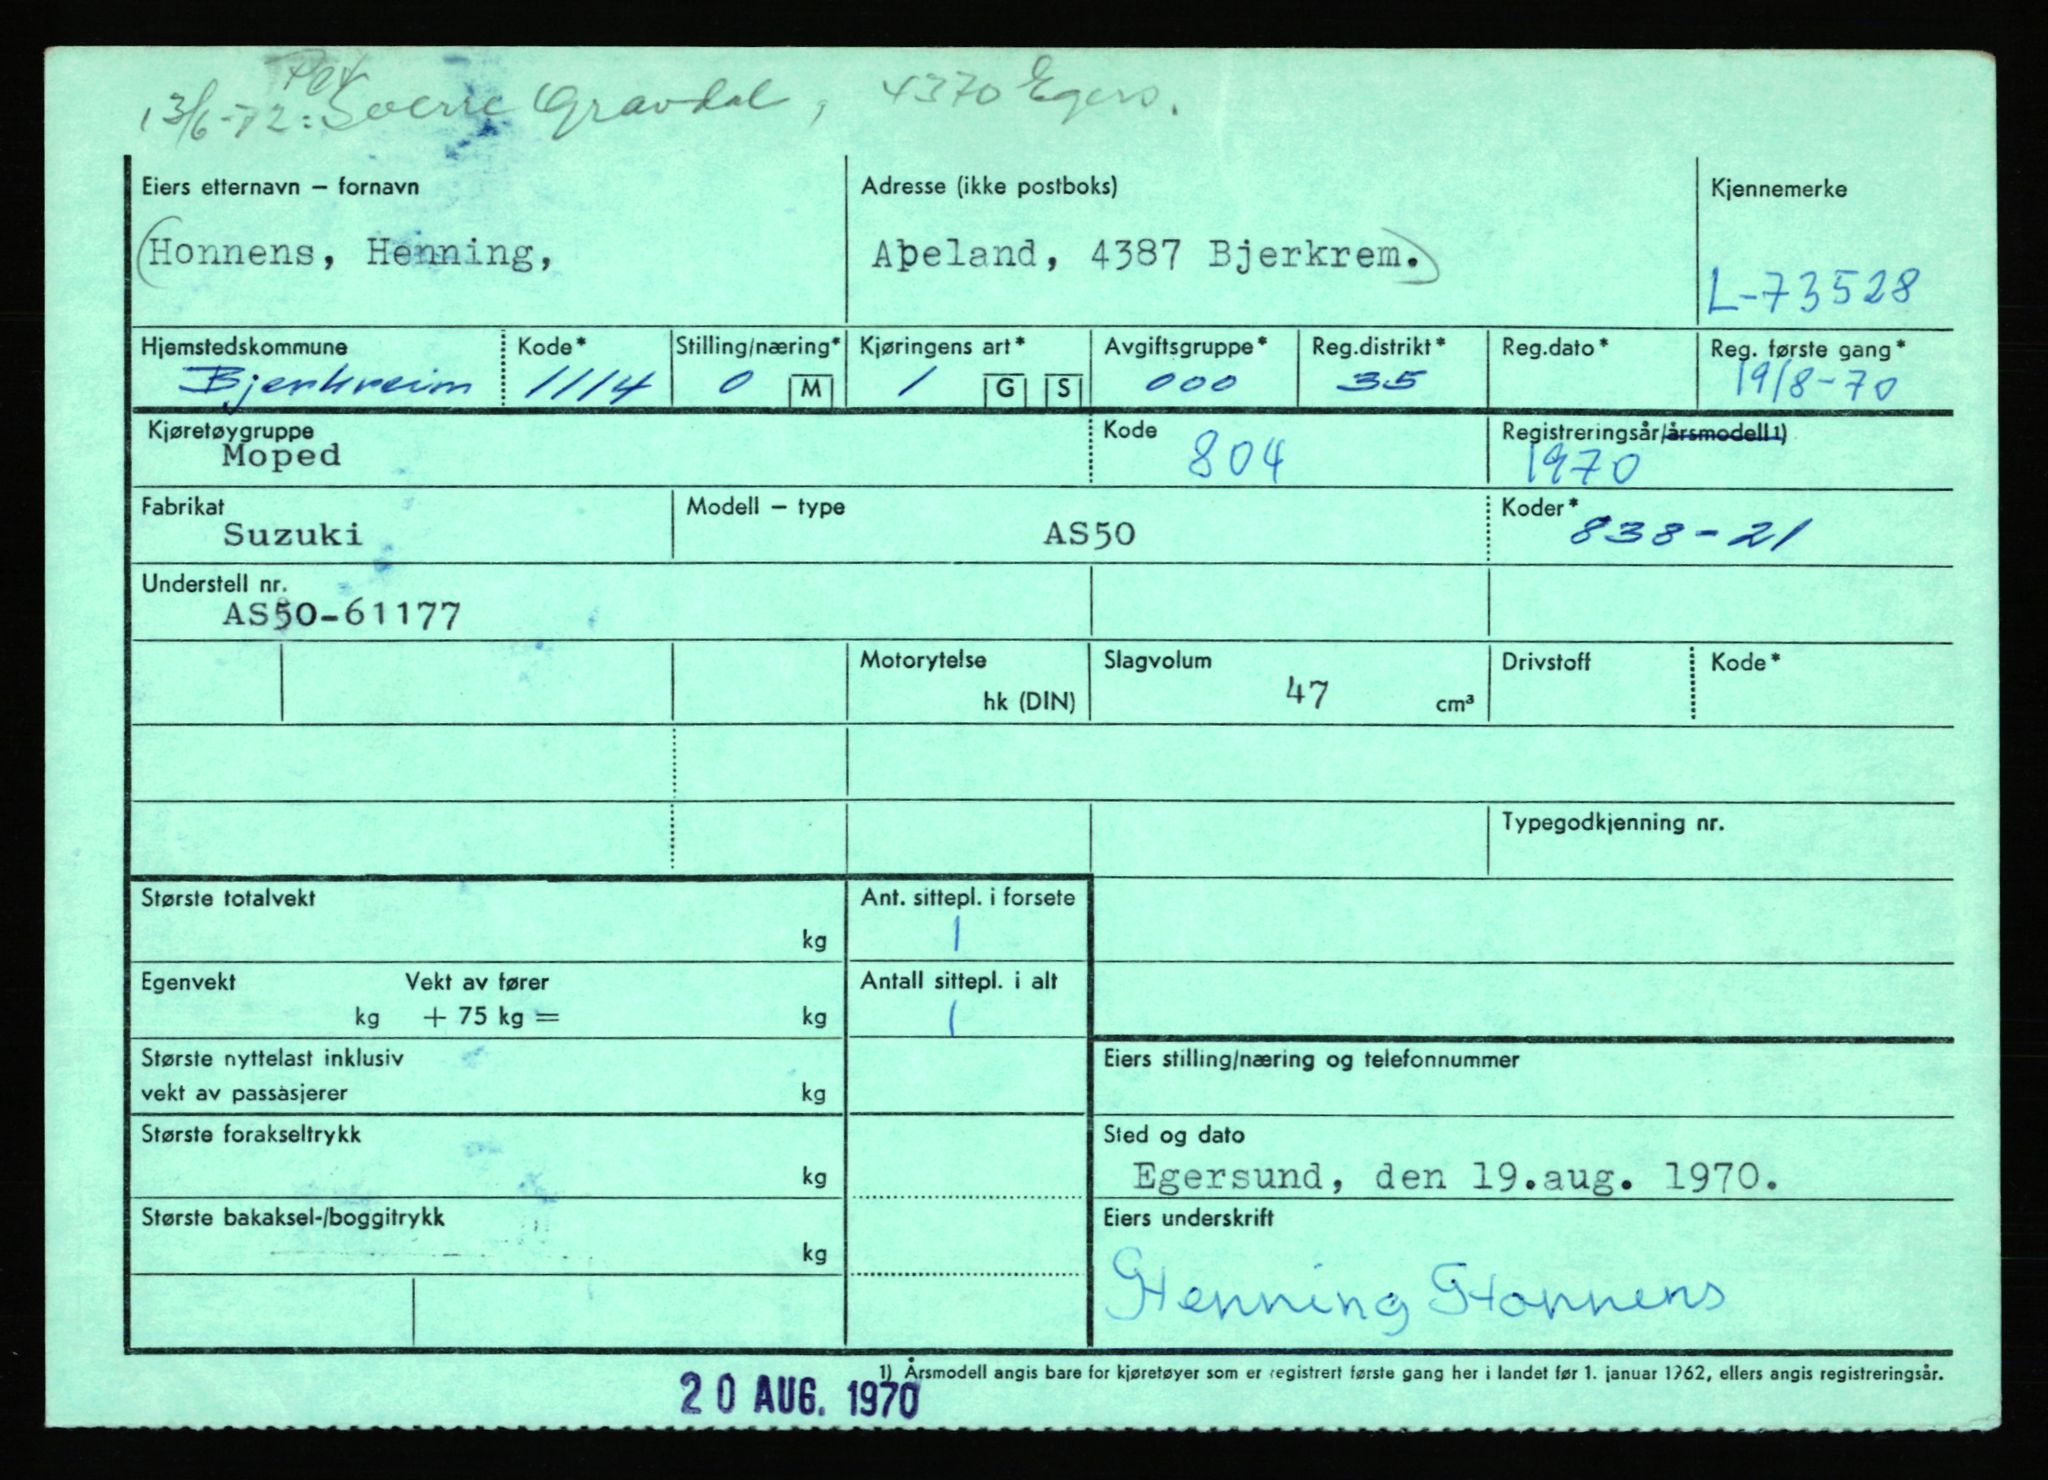 13/6-72: Sverre Gravdal, 4370 Egers.
Eiers etternavn – fornavn Adresse (ikke postboks) Kjennemerke
(Honnens, Henning, Apeland, 4387 Bjerkrem.)
L-73528
Hjemstedskommune Kode* Stilling/næring* Kjøringens art* Avgiftsgruppe* Reg.distrikt* Reg.dato* Reg. første gang*
Bjerkreim 1114 0 M 1 G S 000 35 19/8-70
Kjøretøygruppe Kode Registreringsår/årsmodell 1)
Moped 804 1970
Fabrikat Modell – type Koder*
Suzuki AS50 838-21
Understell nr.
AS50-61177
Motorytelse Slagvolum Drivstoff Kode*
hk (DIN) 47 cm³
Typegodkjenning nr.
Største totalvekt Ant. sittepl. i forsete
kg 1
Egenvekt Vekt av fører Antall sittepl. i alt
kg + 75 kg = kg 1
Største nyttelast inklusiv Eiers stilling/næring og telefonnummer
vekt av passasjerer kg
Største forakseltrykk Sted og dato
kg Egersund, den 19.aug. 1970.
Største bakaksel-/boggitrykk Eiers underskrift
kg
Henning Honnens
1) Årsmodell angis bare for kjøretøyer som er registrert første gang her i landet før 1. januar 1962, ellers angis registreringsår.
20 AUG. 1970